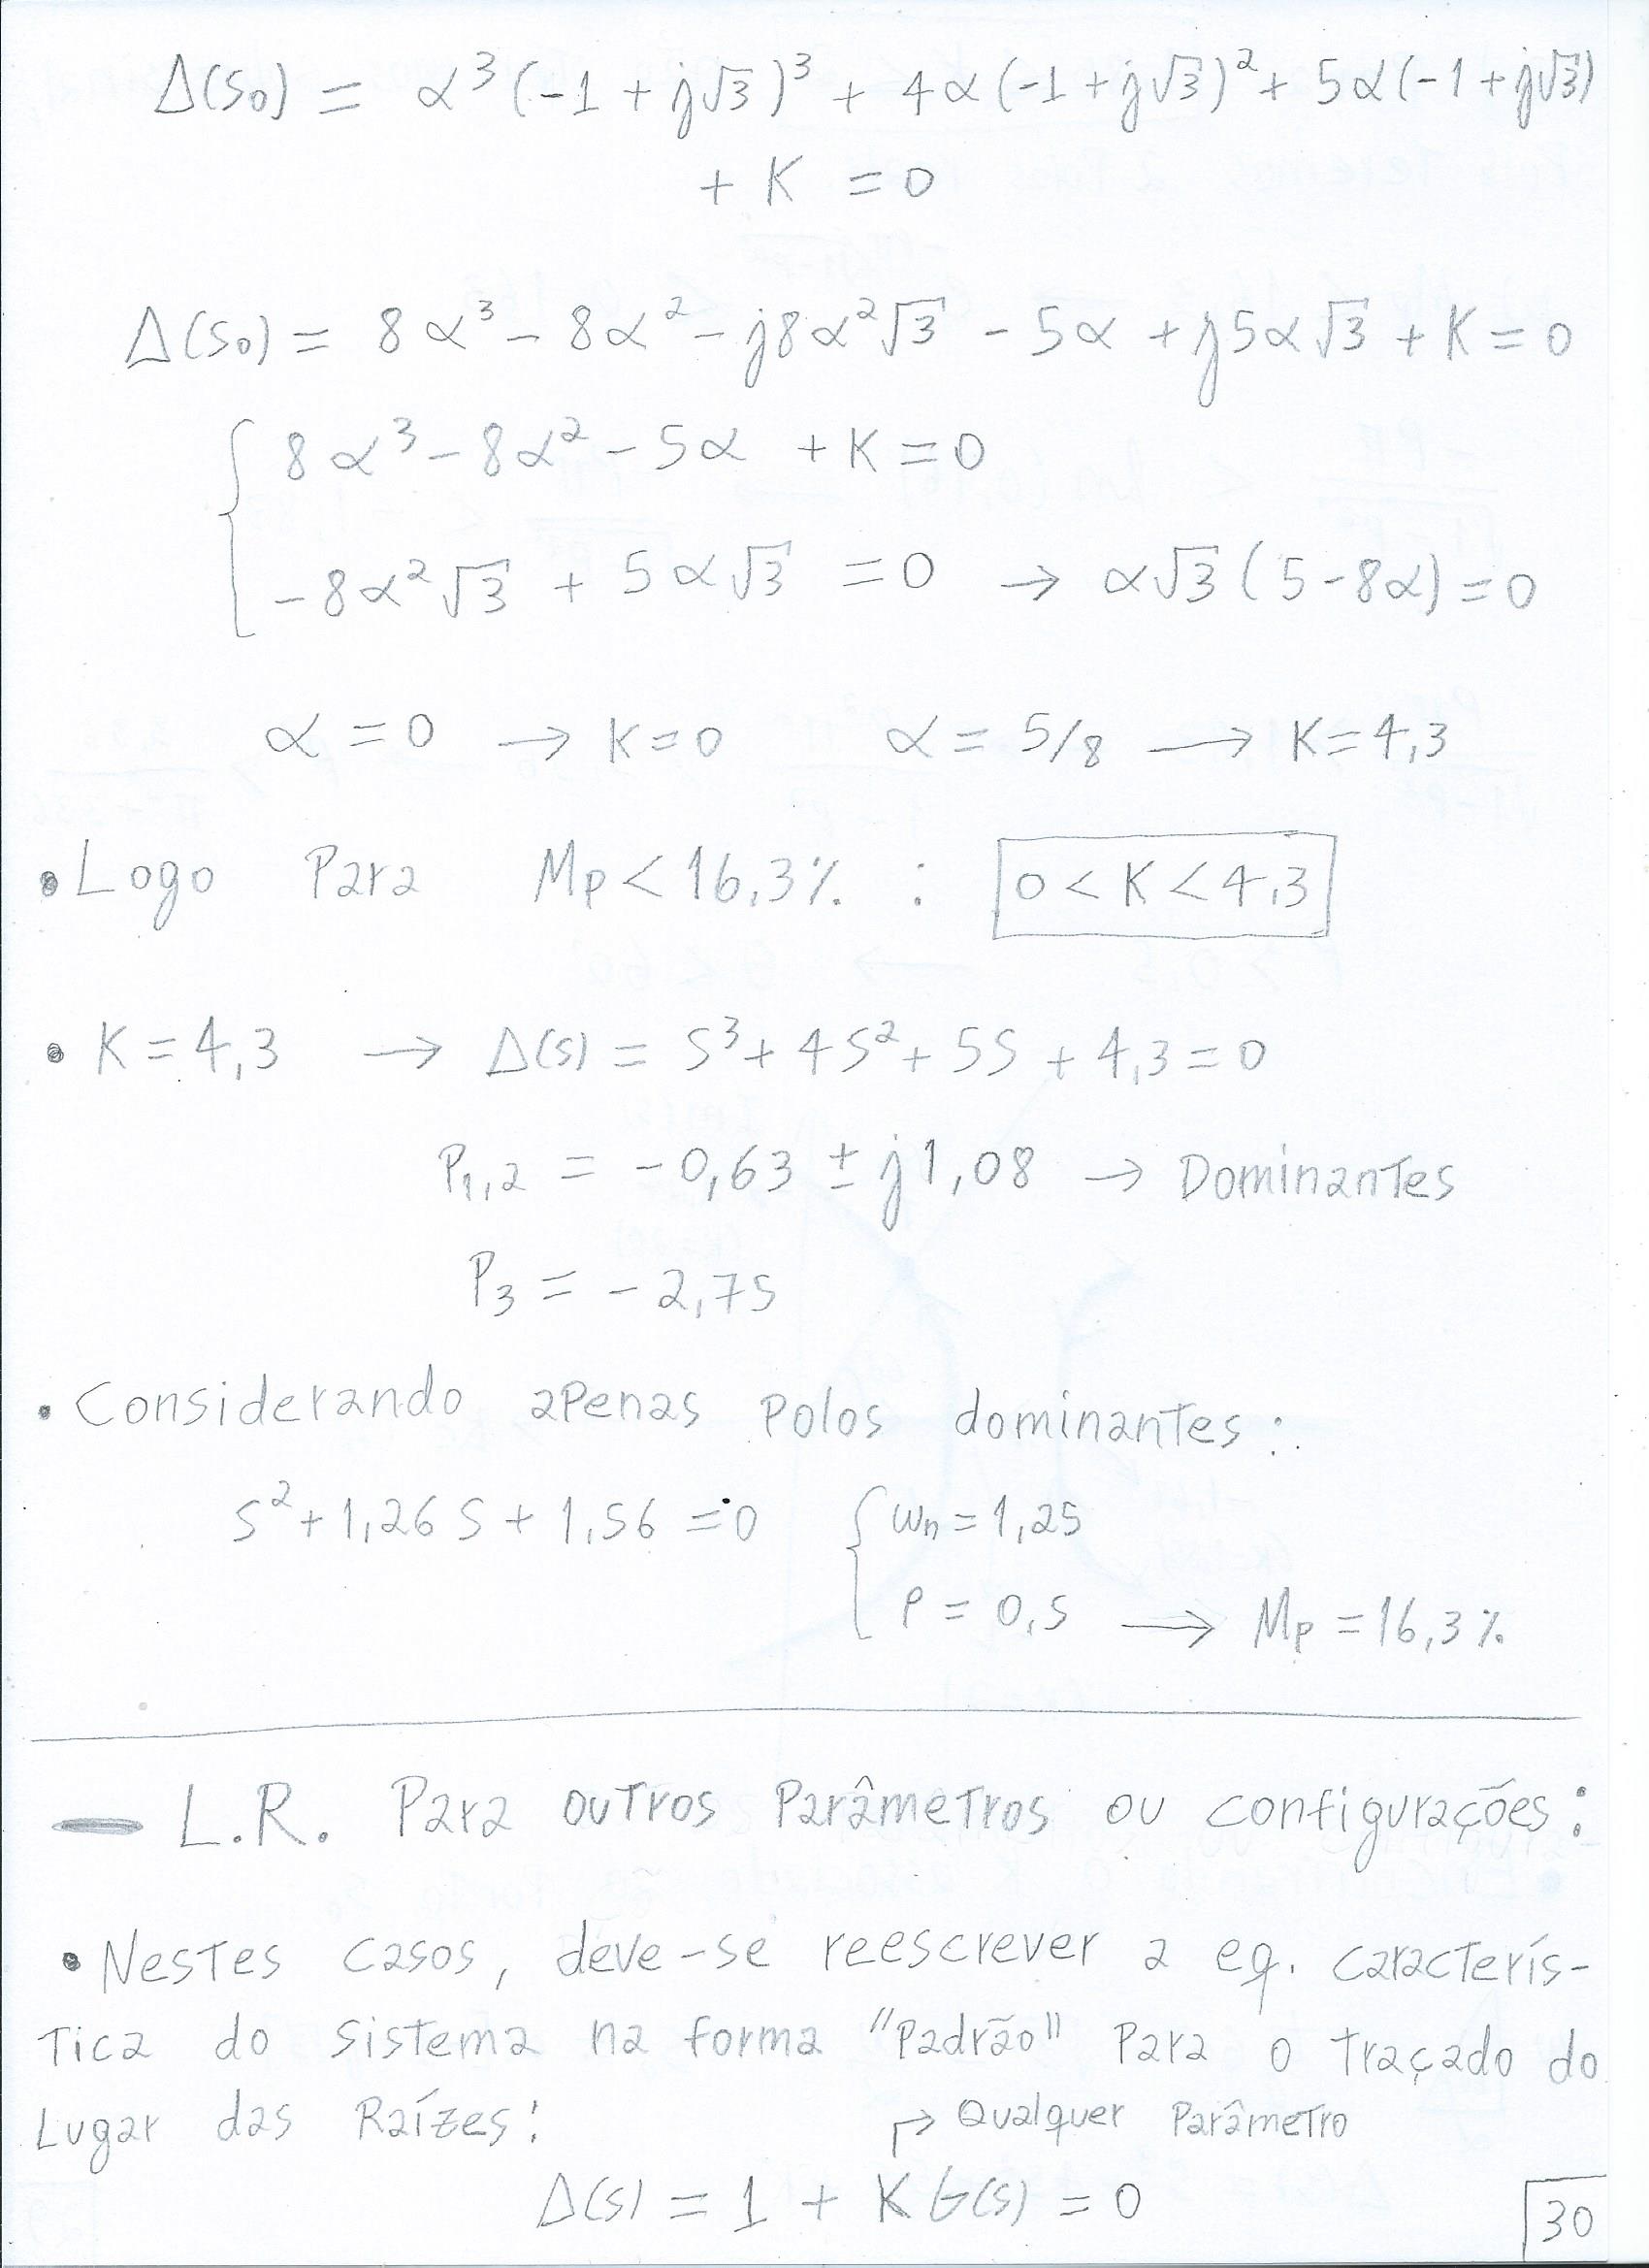 Δ(s₀) = α³(-1 + j√3)³ + 4α(-1 + j√3)² + 5α(-1 + j√3)
+ K = 0
Δ(s₀) = 8α³ - 8α² - j8α²√3 - 5α + j5α√3 + K = 0
8α³ - 8α² - 5α + K = 0
-8α²√3 + 5α√3 = 0 → α√3(5-8α) = 0
α = 0 → K = 0 α = 5/8 → K = 4,3
• Logo Para Mp < 16,3% : 0 < K < 4,3
• K = 4,3 → Δ(s) = s³ + 4s² + 5s + 4,3 = 0
P₁,₂ = -0,63 ± j1,08 → Dominantes
P₃ = -2,75
• Considerando apenas Polos dominantes:
s² + 1,26s + 1,56 = 0 { ωn = 1,25
ρ = 0,5 → Mp = 16,3%
- L.R. Para outros Parâmetros ou configurações:
• Nestes casos, deve-se reescrever a eq. caracterís-
tica do sistema na forma "Padrão" Para o traçado do
Lugar das Raízes:
↱ Qualquer Parâmetro
Δ(s) = 1 + K G(s) = 0
30